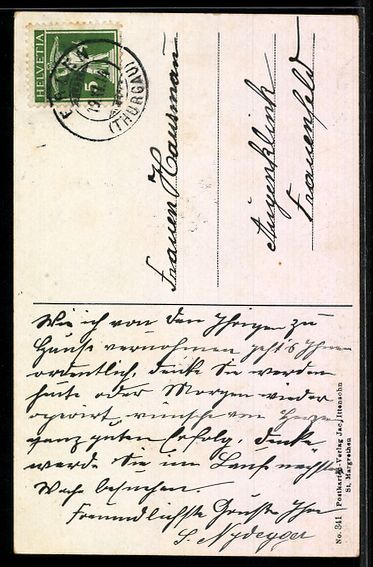 HELVETIA
5
(THURGAU)
Frauen Hausmann
Augenklinik
Frauenfeld
Wie ich von den Ihrigen zu
Hause vernohmen geht's Ihnen
ordentlich, denke Sie werden
heute oder Morgen wieder
operirt wünsche von Herzen
ganz guten Erfolg, denke
werde Sie im Laufe nächster
Woche besuchen.
Freundlichste Grüsse Ihr
S. Nydegger
No. 341 Postkarten-Verlag Jac. Ittensohn
St. Margrethen